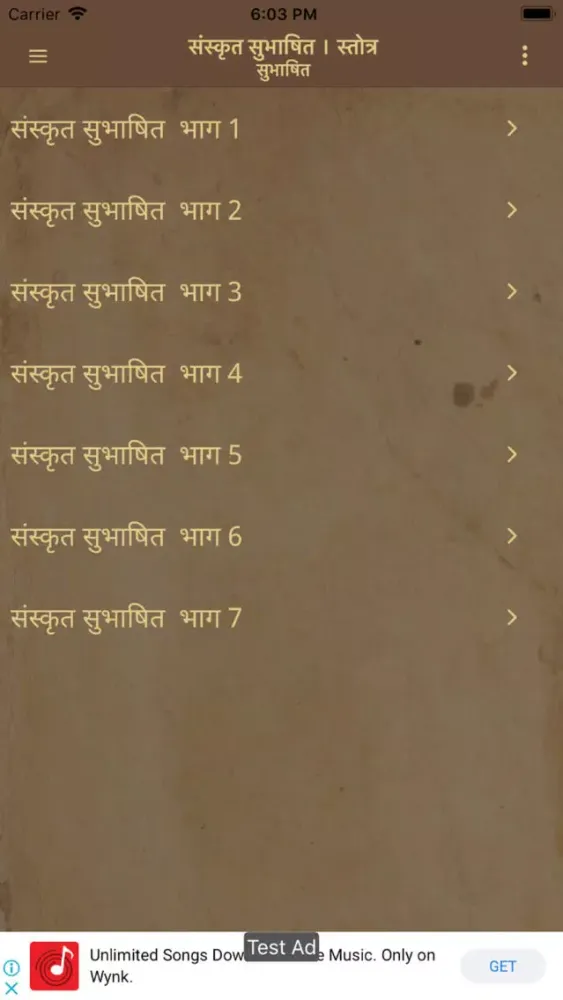 Carrier 6:03 PM
संस्कृत सुभाषित । स्तोत्र
सुभाषित
संस्कृत सुभाषित भाग 1
संस्कृत सुभाषित भाग 2
संस्कृत सुभाषित भाग 3
संस्कृत सुभाषित भाग 4
संस्कृत सुभाषित भाग 5
संस्कृत सुभाषित भाग 6
संस्कृत सुभाषित भाग 7
Test Ad
Unlimited Songs Dow e Music. Only on
Wynk.
GET